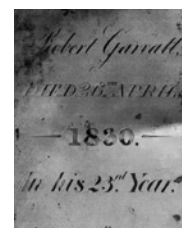 Robert Garratt.
DIED 26TH APRIL
— 1830. —
In his 23rd Year.